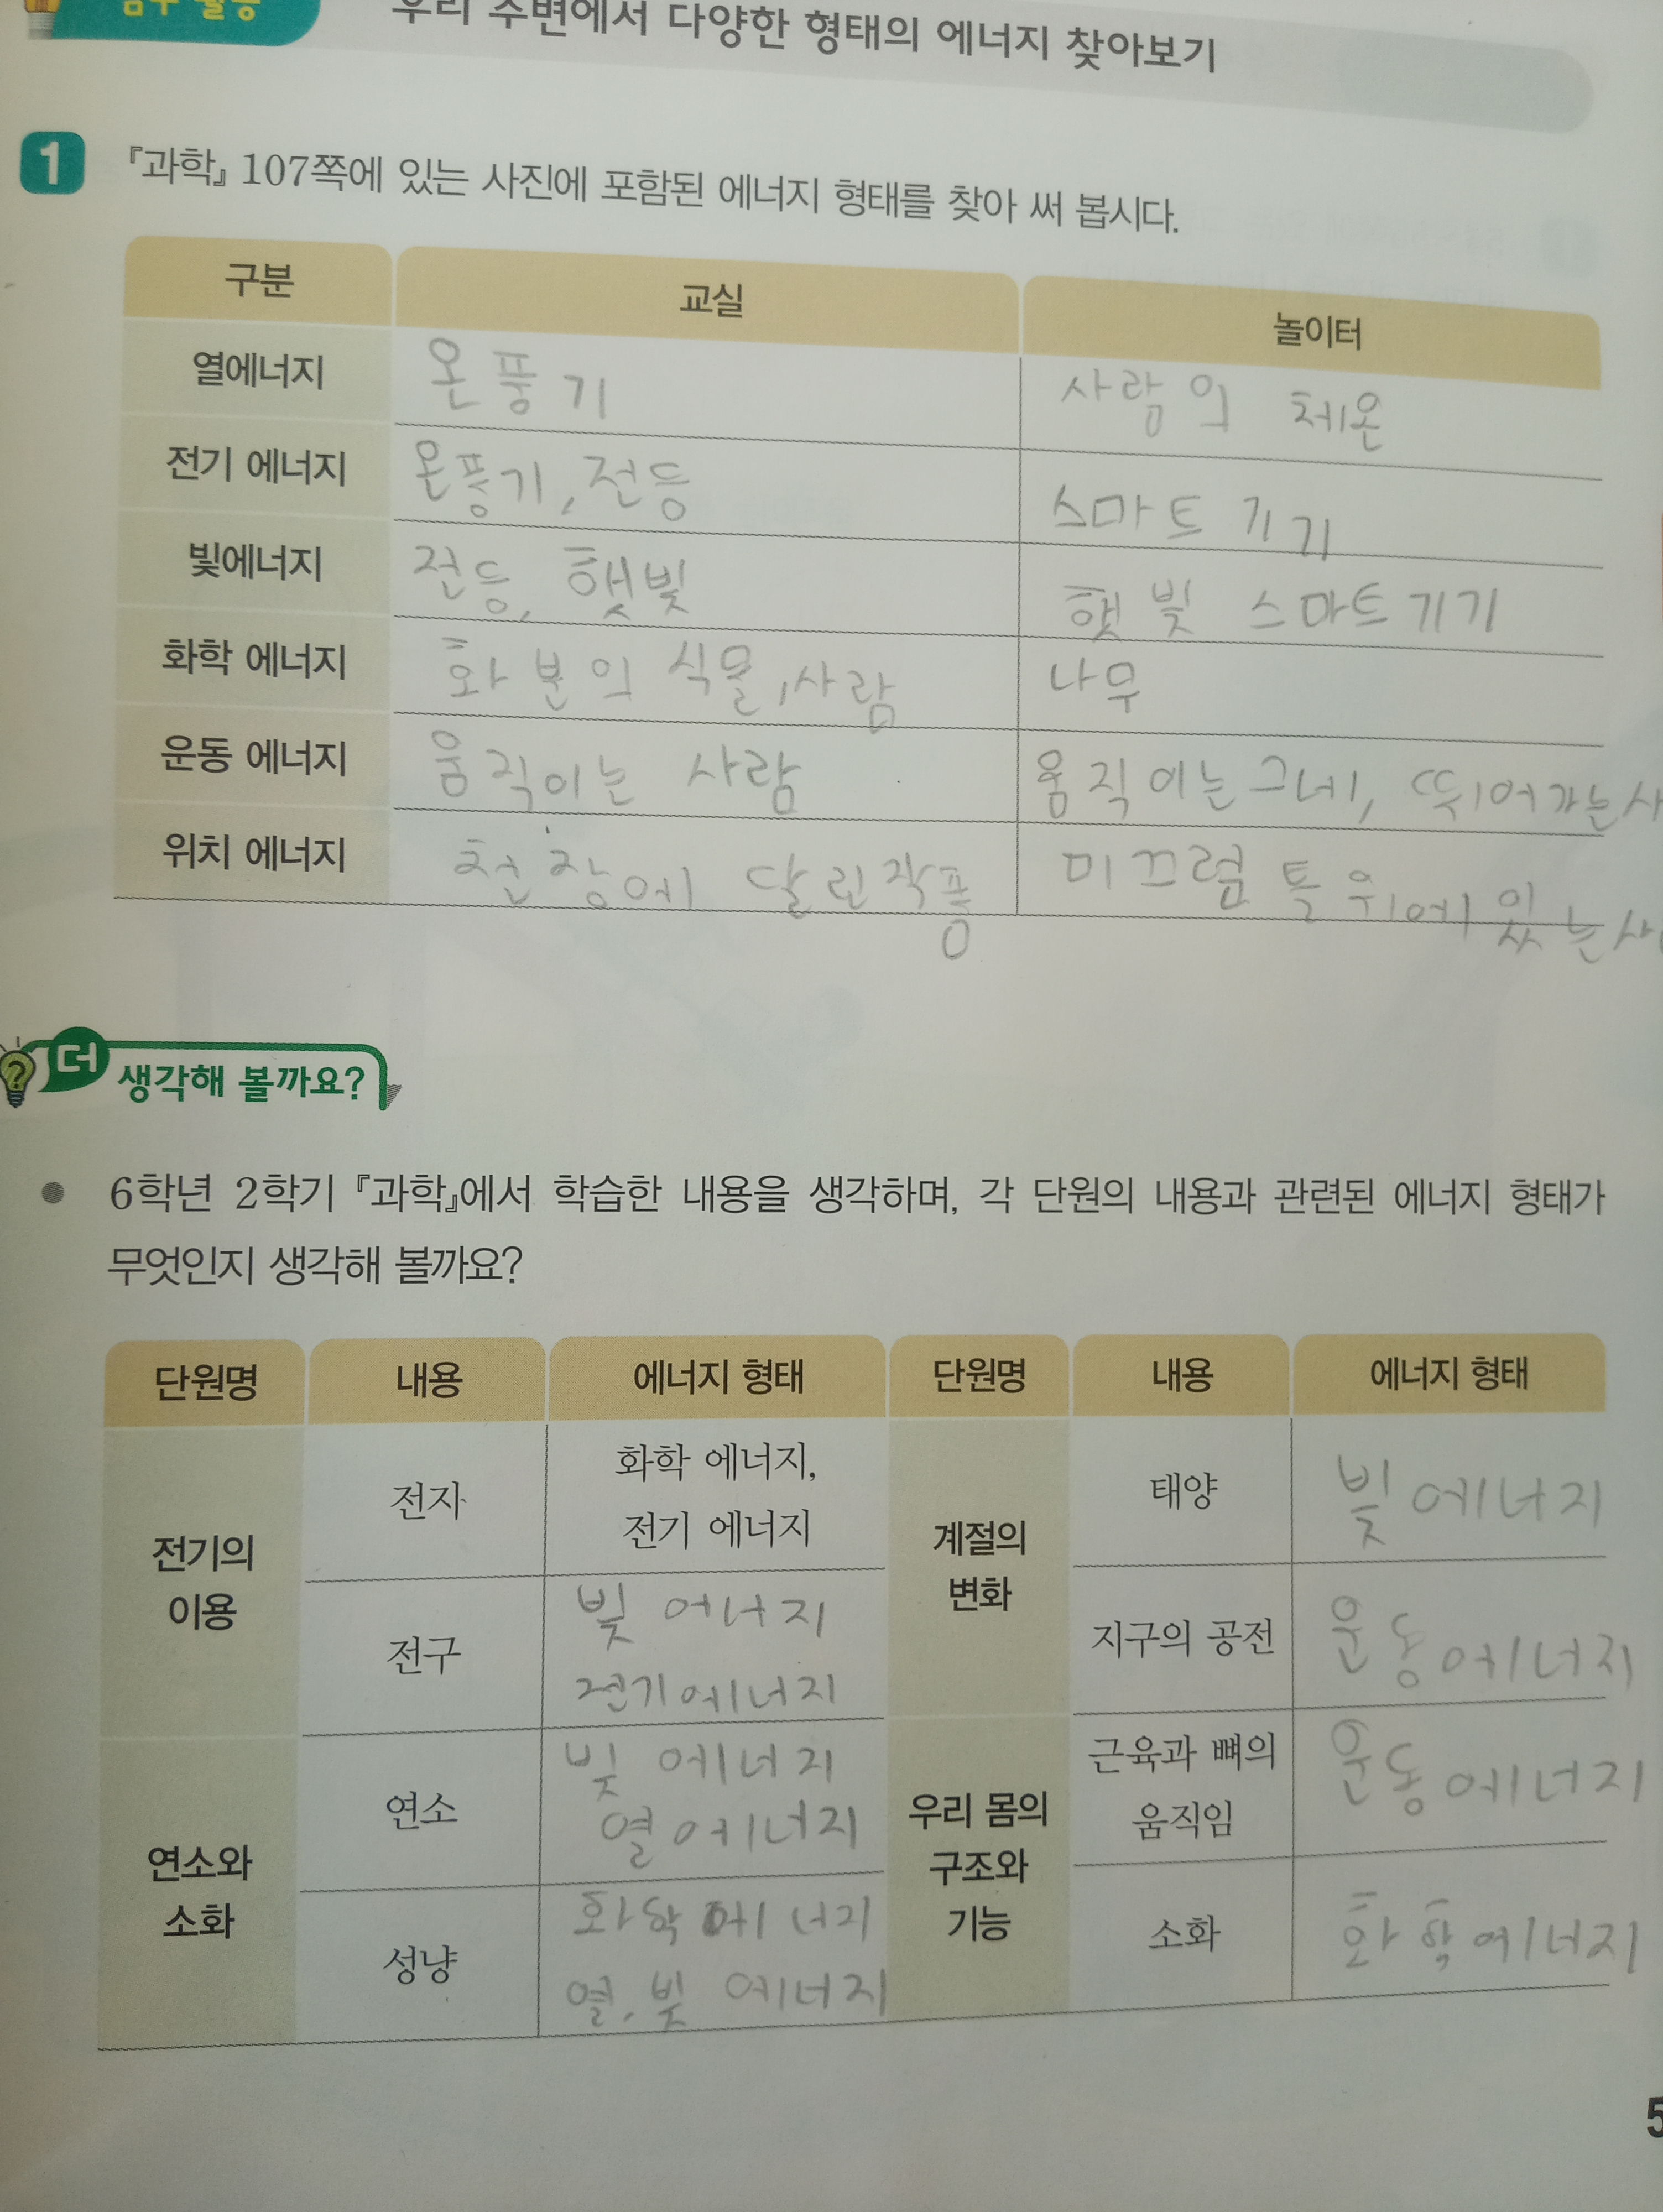 우리 주변에서 다양한 형태의 에너지 찾아보기
1 『과학』 107쪽에 있는 사진에 포함된 에너지 형태를 찾아 써 봅시다.
구분 교실 놀이터
열에너지 온풍기 사람의 체온
전기 에너지 온풍기, 전등 스마트 기기
빛에너지 전등, 햇빛 햇빛 스마트기기
화학 에너지 화분의 식물, 사람 나무
운동 에너지 움직이는 사람 움직이는 그네, 뛰어가는 사
위치 에너지 천장에 달린 작품 미끄럼 틀 위에 있는
더 생각해 볼까요?
6학년 2학기 『과학』에서 학습한 내용을 생각하며, 각 단원의 내용과 관련된 에너지 형태가
무엇인지 생각해 볼까요?
단원명 내용 에너지 형태 단원명 내용 에너지 형태
전기의
이용
전자
화학 에너지,
전기 에너지
전구
빛 에너지
전기에너지
연소와
소화
연소
빛 에너지
열에너지
성냥
화학에너지
열, 빛 에너지
계절의
변화
태양
빛에너지
지구의 공전
운동에너지
우리 몸의
구조와
기능
근육과 뼈의
움직임
운동에너지
소화
화학에너지
5